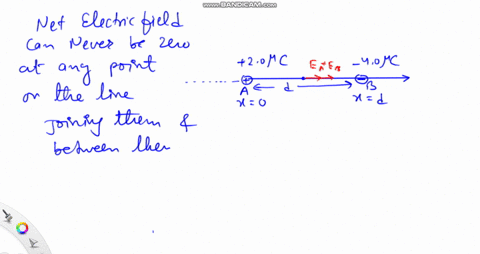 www.BANDICAM.com
Net Electric field
Can Never be zero
at any point
on the line
joining them &
between then
+2.0 μC
E_A E_B
-4.0 μC
A
d
B
x=0
x=d